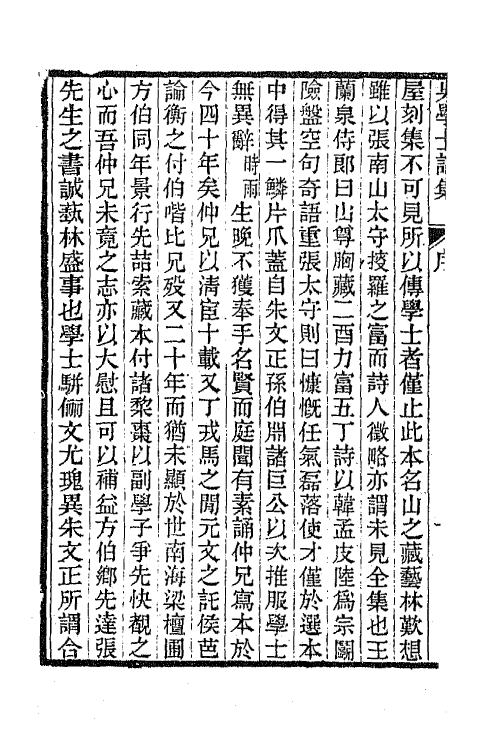 吳學士詩集 序 一
屋刻集不可見所以傳學士者僅止此本名山之藏藝林歎想
雖以張南山太守搜羅之富而詩人徵略亦謂未見全集也王
蘭泉侍郎曰山尊胸藏二酉力富五丁詩以韓孟皮陸爲宗鬭
險盤空句奇語重張太守則曰慷慨任氣磊落使才僅於選本
中得其一鱗片爪蓋自朱文正孫伯淵諸巨公以次推服學士
無異辭時雨生晚不獲奉手名賢而庭聞有素誦仲兄寫本於
今四十年矣仲兄以淸宦十載又丁戎馬之閒元文之託侯芭
論衡之付伯喈比兄歿又二十年而猶未顯於世南海梁檀圃
方伯同年景行先喆索藏本付諸棃棗以副學子爭先快覩之
心而吾仲兄未竟之志亦以大慰且可以補益方伯鄉先達張
先生之書誠蓺林盛事也學士駢儷文尤瑰異朱文正所謂合